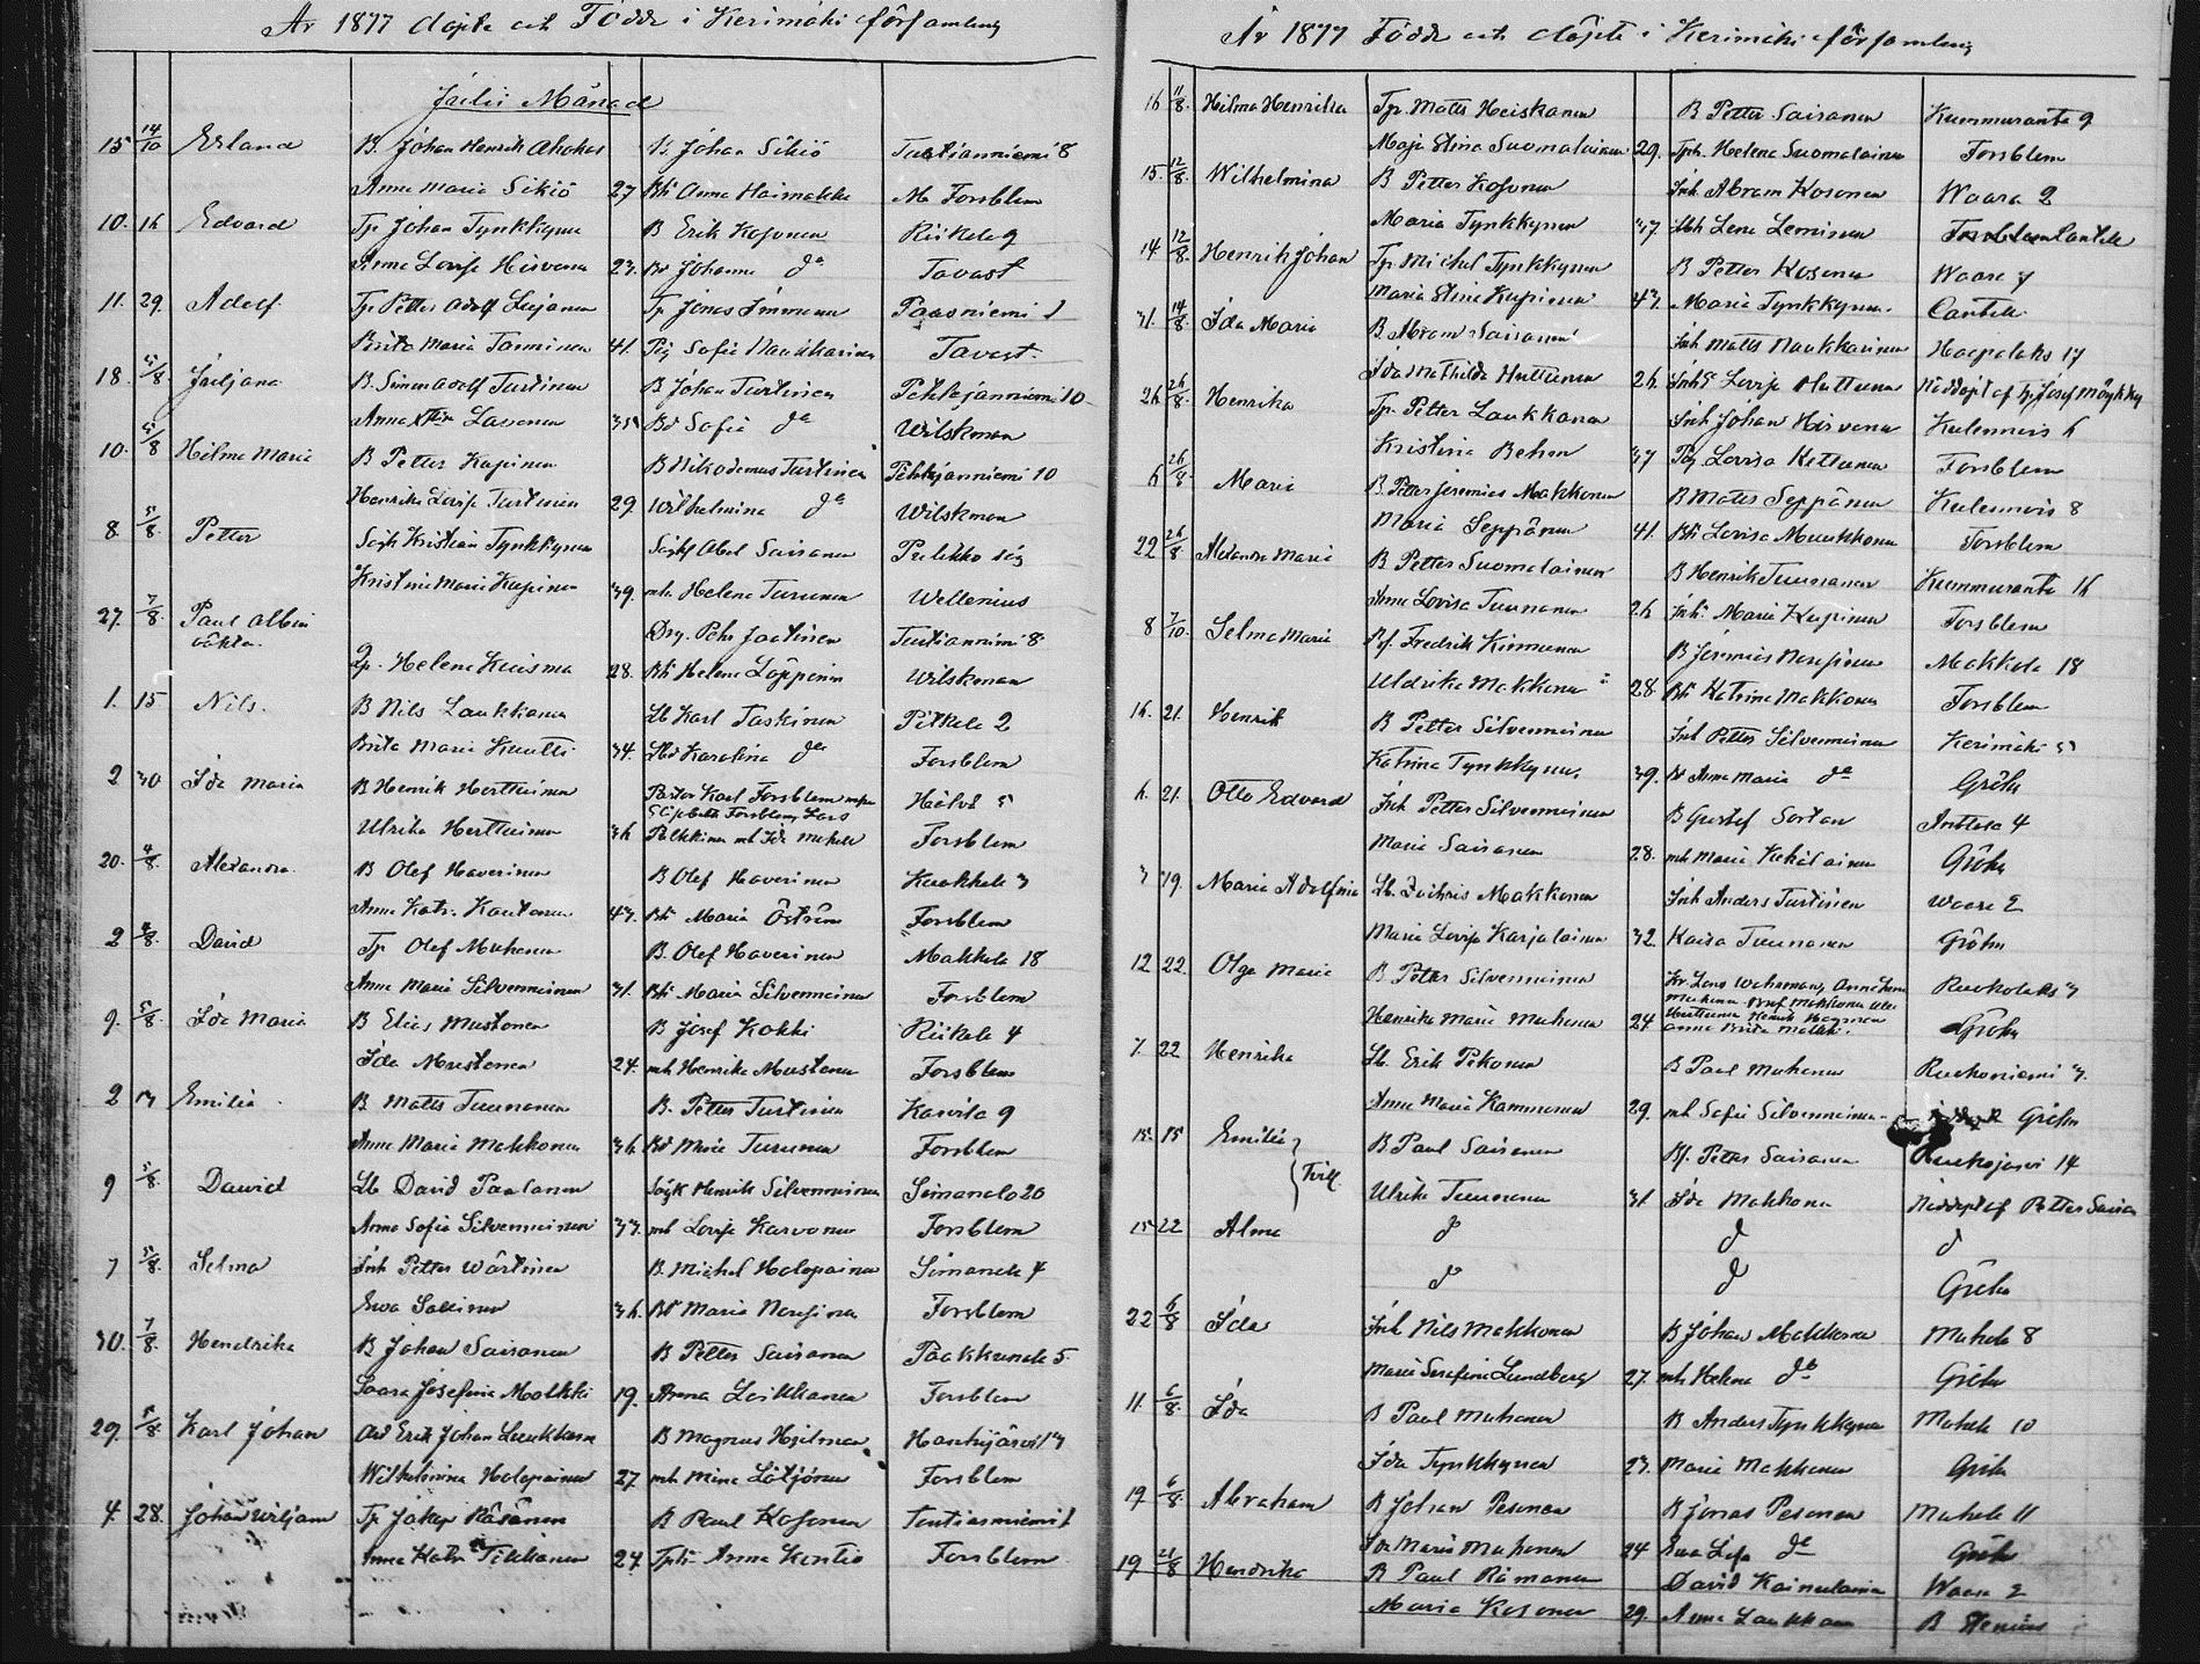 År 1877 döpte och Födde i Kerimäki församling
Julii Månad
15 14/10 Erland B. Johan Henrik Ahokas B. Johan Sikiö Tuutianniemi 8
Anna Maria Sikiö 27 Bh Anna Haimakka M Forsblom
10. 16 Edvard Tp Johan Tynkkynen B Erik Kosonen Riikola 9
Anna Lovisa Hirvonen 23. Bd Johanna do Tavast
11. 29. Adolf Tp Petter Adolf Tp Jonas Immonen Paasniemi 1
Brita Maria Torninen 41. Pig Sofia Naukkarinen Tavast.
18. 5/8. Juljana B. Simon Adolf Turtinen B Johan Turtinen Pehkjanniemi 10
Anna Lassonen 35 Bd Sofia do Wilskman
10. 5/8 Hilma Maria B Petter Kupinen B Nikodemus Turtinen Pehkjanniemi 10
Henrika Lovisa Turtinen 29. Wilhelmina do Wilskman
8. 5/8. Petter Kristian Tynkkynen Abel Sairanen
Kristina Maria Kupinen 39. mh. Helena Turunen Wellenius
27. 7/8. Paul Albin Drg. Pehr Jaatinen Tuutianniemi 8
oäkta. Helena Kuisma 28. Bh Helena Löppönen Wilskman
1. 15 Nils. B Nils Laukkanen Lb Karl Taskinen Pitkele 2
Brita Maria Kuutti 34. Lbd Karolina do Forsblom
2 30 Ida Maria B Henrik Herttuinen Pastor Karl Forsblom Hälvä 5
Elisabeth Forsblom, Lars
Ulrika Herttuinen 36 Pulkkinen mh Ida Forsblom
20. 4/8. Alexandra. B Olof Haverinen B Olof Haverinen Kuokkala 3
Anna Katr. Kautonen 43. Bh Maria Öström Forsblom
2 4/8. David Tp Olof Muhonen B. Olof Haverinen Makkola 18
Anna Maria Silvennoinen 31. Bh Maria Silvennoinen Forsblom
9. 5/8. Ida Maria B Elias Mustonen B Josef Kokki Riikola 4
Ida Mustonen 24. mh Henrika Mustonen Forsblom
2 Emilia B Matts Tuunanen B. Petter Turtinen Karvila 9
Anna Maria Makkonen 36 Bd Maria Turunen Forsblom
9 5/8. Dawid Lb David Paalanen Henrik Silvennoinen Simanala 20
Anna Sofia Silvennoinen 33. mh Lovisa Karvonen Forsblom
7 5/8. Selma Inh Petter Wärtinen B. Michel Holopainen Simanala 4
Ewa Sallinen 36. Bh Maria Forsblom
30. 7/8. Hendrika B Johan Sairanen B Petter Sairanen Paakkunala 5.
Saara Josefina Malkki 19. Anna Leikkanen Forsblom
29. 5/8. Karl Johan Erik Johan Luukkonen B Magnus Hjelman
Wilhelmina Holopainen 27 mh Mina Lötjönen Forsblom
4. 28. Johan Wiljam Tp Jakop Räsänen B Paul Kosonen Tuutianniemi 1
Anna Katr. Tikkanen 24. Tph Anna Kontio Forsblom
År 1877 Födde och döpte i Kerimäki församling
16 11/8. Hilma Henrika Tp. Matts Heiskanen B Petter Sairanen Kummuranta 9
Maja Stina Suomalainen 29. Tph. Helena Suomalainen Forsblom
15. 12/8. Wilhelmina B Petter Kosonen Inh. Abram Kosonen Waara 2
Maria Tynkkynen 37. Lbh Lena Leminen
14 12/8. Henrik Johan Tp Michel Tynkkynen B Petter Kosonen Waara 7
Maria Stina Kupiainen 43. Maria Tynkkynen. Cantele.
31. 14/8. Ida Maria B. Abram Sairanen Inh Matts Naukkarinen Haapalaks 17
Ida Mathilda Huttunen 26. Lovisa Huttunen
26 26/8. Henrika Tp. Petter Laukkanen Inh Johan Hirvonen Kulennois 6
Kristina Behm 37 Pig Lovisa Kettunen Forsblom
6 26/8. Maria B. Petter Jeremias Makkonen B Matts Seppänen Kulennois 8
Maria Seppänen 41. Bh Lovisa Muukkonen Forsblom
22 26/8 Alexandra Maria B Petter Suomalainen B Henrik Tuunanen Kummuranta 16
Anna Lovisa Tuunanen 26 Maria Kupinen Forsblom
8 7/10. Selma Maria Fredrik Kinnunen B Jeremias Makkola 18
Uldrika Makkonen 28 Bh Katrina Makkonen Forsblom
16. 21. Henrik B Petter Silvennoinen Inh Petter Silvennoinen Kerimäki 5
Katrina Tynkkynen. 39. Bd Anna Maria do Gröhn
6. 21. Otto Edvard Inh Petter Silvennoinen B Gustaf Sortan Anttola 4
Maria Sairanen 28. mh Maria Kekäläinen Gröhn
3 19. Maria Adolfina Lb. Zachris Makkonen Inh Anders Turtinen Waara 2
Maria Lovisa Karjalainen 32. Kaisa Tuunanen Gröhn
12 22. Olga Maria B Petter Silvennoinen Lars Wahrman, Anna Lena Ruokolaks 3
Muhonen Josef Makkonen Ulla
Henrika Maria Muhonen 24 Huttunen Henrik Gröhn
Anna Brita Malkki.
7. 22 Henrika Lb. Erik Pekonen B Paul Muhonen Ruokoniemi 3.
Anna Maria Kammonen 29. mh Sofia Silvennoinen Gröhn
15. 15 Emilia B Paul Sairanen Bs. Petter Sairanen 14
Tvill. Ulrika Tuunanen 31 Ida Makkonen Nöddöpt af Petter Sairan
15 22 Alma do do do
do do Gröhn
22 6/8 Ida Inh Nils Makkonen B Johan Makkonen Muhola 8
Maria Serafina Lundberg 27. mh Helena do Gröhn
11. 6/8. Ida B Paul Muhonen B Anders Tynkkynen Muhola 10
Ida Tynkkynen 23. Maria Makkonen Gröhn
19. 6/8. Abraham B Johan Pesonen B Jonas Pesonen Muhola 11
Ida Maria Muhonen 24 Ewa Lisa do Gröhn
19. 21/8 Hendrika B Paul Rämänen David Kainulainen Waara 2
Maria Kosonen 29. Anna Laukkan B